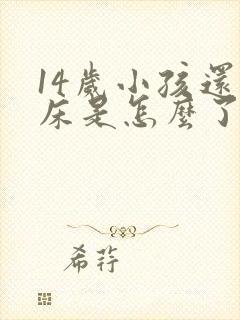 14歲小孩還
床是怎麼了
希荇